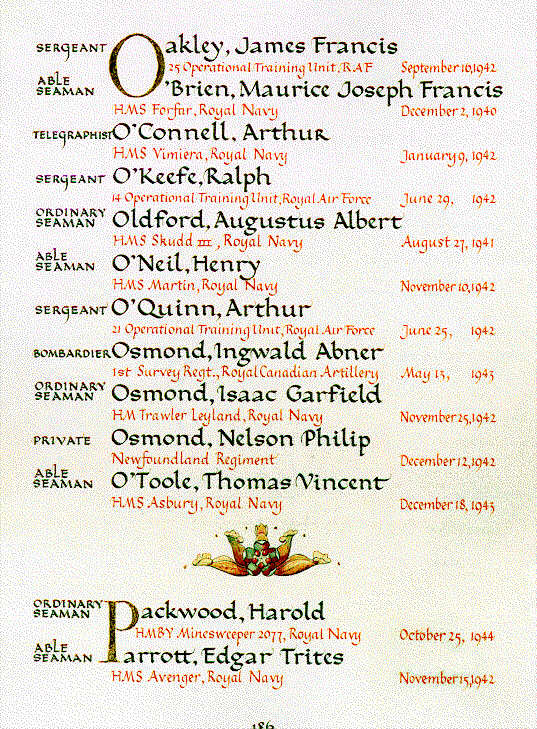 SERGEANT Oakley, James Francis
25 Operational Training Unit, RAF September 10, 1942
ABLE SEAMAN O'Brien, Maurice Joseph Francis
HMS Forfar, Royal Navy December 2, 1940
TELEGRAPHIST O'Connell, Arthur
HMS Vimiera, Royal Navy January 9, 1942
SERGEANT O'Keefe, Ralph
14 Operational Training Unit, Royal Air Force June 29, 1942
ORDINARY SEAMAN Oldford, Augustus Albert
HMS Skudd III, Royal Navy August 27, 1941
ABLE SEAMAN O'Neil, Henry
HMS Martin, Royal Navy November 10, 1942
SERGEANT O'Quinn, Arthur
21 Operational Training Unit, Royal Air Force June 25, 1942
BOMBARDIER Osmond, Ingwald Abner
1st Survey Regt., Royal Canadian Artillery May 13, 1943
ORDINARY SEAMAN Osmond, Isaac Garfield
HM Trawler Leyland, Royal Navy November 25, 1942
PRIVATE Osmond, Nelson Philip
Newfoundland Regiment December 12, 1942
ABLE SEAMAN O'Toole, Thomas Vincent
HMS Asbury, Royal Navy December 18, 1943
ORDINARY SEAMAN Packwood, Harold
HMBY Minesweeper 2077, Royal Navy October 25, 1944
ABLE SEAMAN Parrott, Edgar Trites
HMS Avenger, Royal Navy November 15, 1942
186